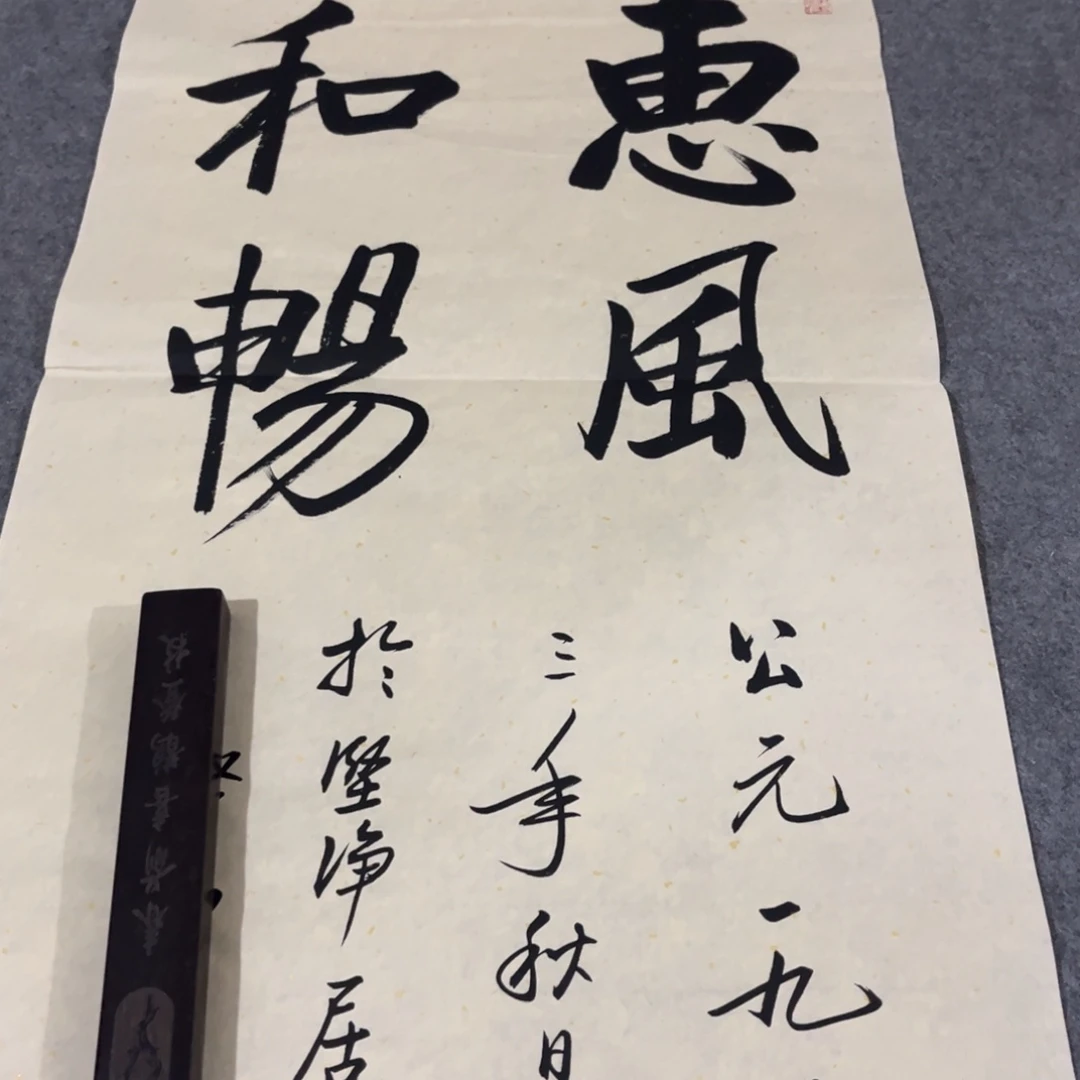 惠風
和暢
公元一九
三年秋日
於堅净居